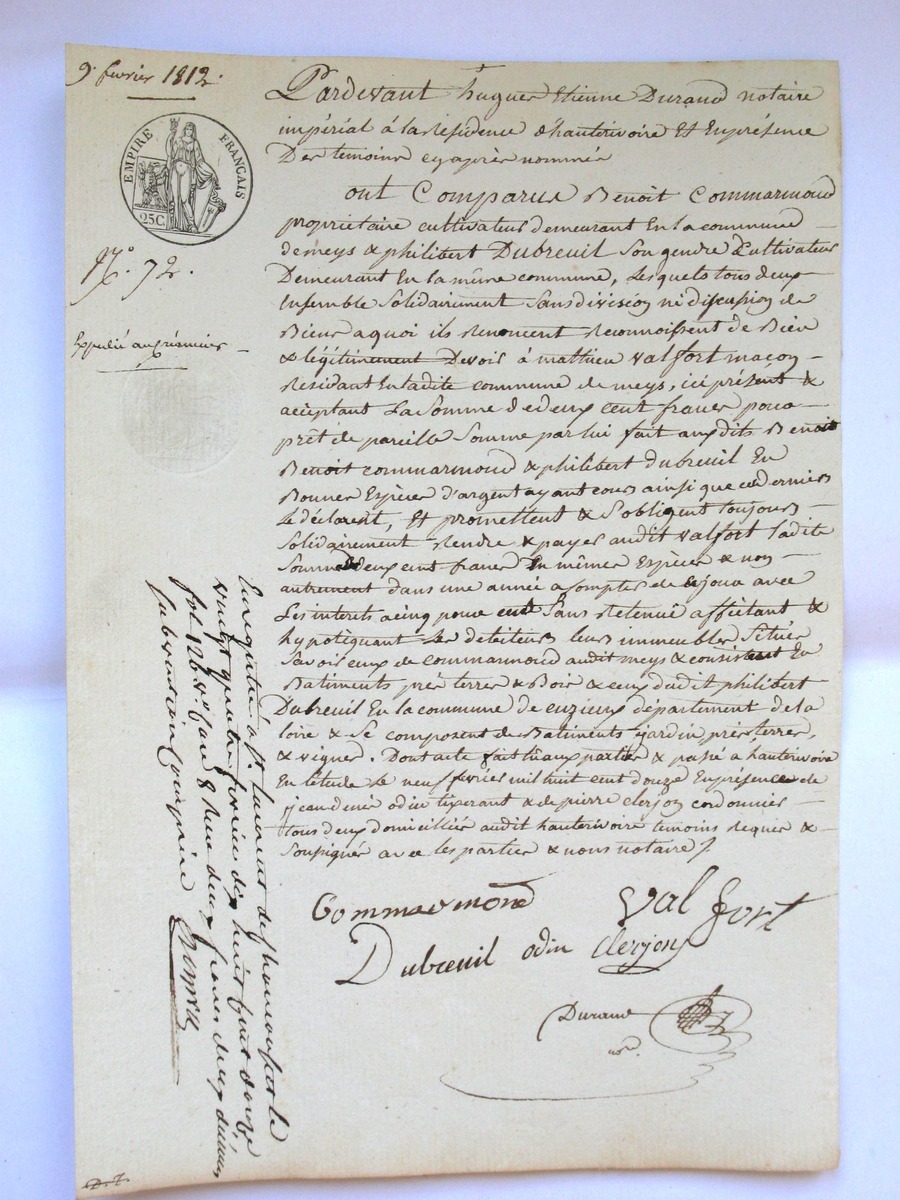 9. fevrier 1812.
EMPIRE FRANÇAIS
25C.
N.o 72.
Expedié au créancier
Pardevant hugues Etienne Durand notaire
impérial à la résidence d'hauterivoire Et Enprésence
Des temoins cyaprès nommés
ont Comparus Benoît Commarmond
propriétaire cultivateur demeurant En la commune
de meys & philibert Dubreuil Son gendre Cultivateur
Demeurant En la même commune, Lesquels tous deux
Ensemble Solidairement Sans division ni discussion de
Biens aquoi ils Renoncent Reconnoissent de Bien
& légitimement Devoir à mathieu Valfort maçon
Residant En ladite commune de meys, ici présent &
acceptant La Somme de deux cent francs pour
prêt de pareille Somme par lui fait auxdits Benoit
Benoit commarmond & philibert dubreuil En
Bonnes Espèces d'argent ayant cours ainsi que ces derniers
Le déclarent, Et promettent & S'obligent toujours
Solidairement Rendre & payer audit Valfort ladite
Somme de deux cent francs En mêmes Espèces & non
autrement dans une année a compter de cejour avec
Les interets a cinq pour cent Sans retenue affectant &
hypotiquant les debiteurs leurs immeubles Situés
Savoir ceux de Commarmond audit meys & consistent En
Batiments prés terres & Bois & ceux dudit philibert
Dubreuil En la commune de cuzieux département de la
loire & Se composent de Batiments jardin, prés terres,
& vignes. Dont acte fait & aux parties & passé a hauterivoire
En l'étude le neuf fevrier mil huit cent douze En présence de
jean denis odin tixerant & de pierre clerjon cordonnier
tous deux domicilliés audit hauterivoire temoins Requis &
Soussignés avec les parties & nous notaire
Commarmond Val fort
Dubreuil odin clerjon
Durand
nore.
Enregistré à St. laurent de chamousset le
vingt quatre fevrier dix huit cent douze
fol. 126 v.o Case 8 Reçu deux francs deux décimes
la subvention Comprise
D. 7.